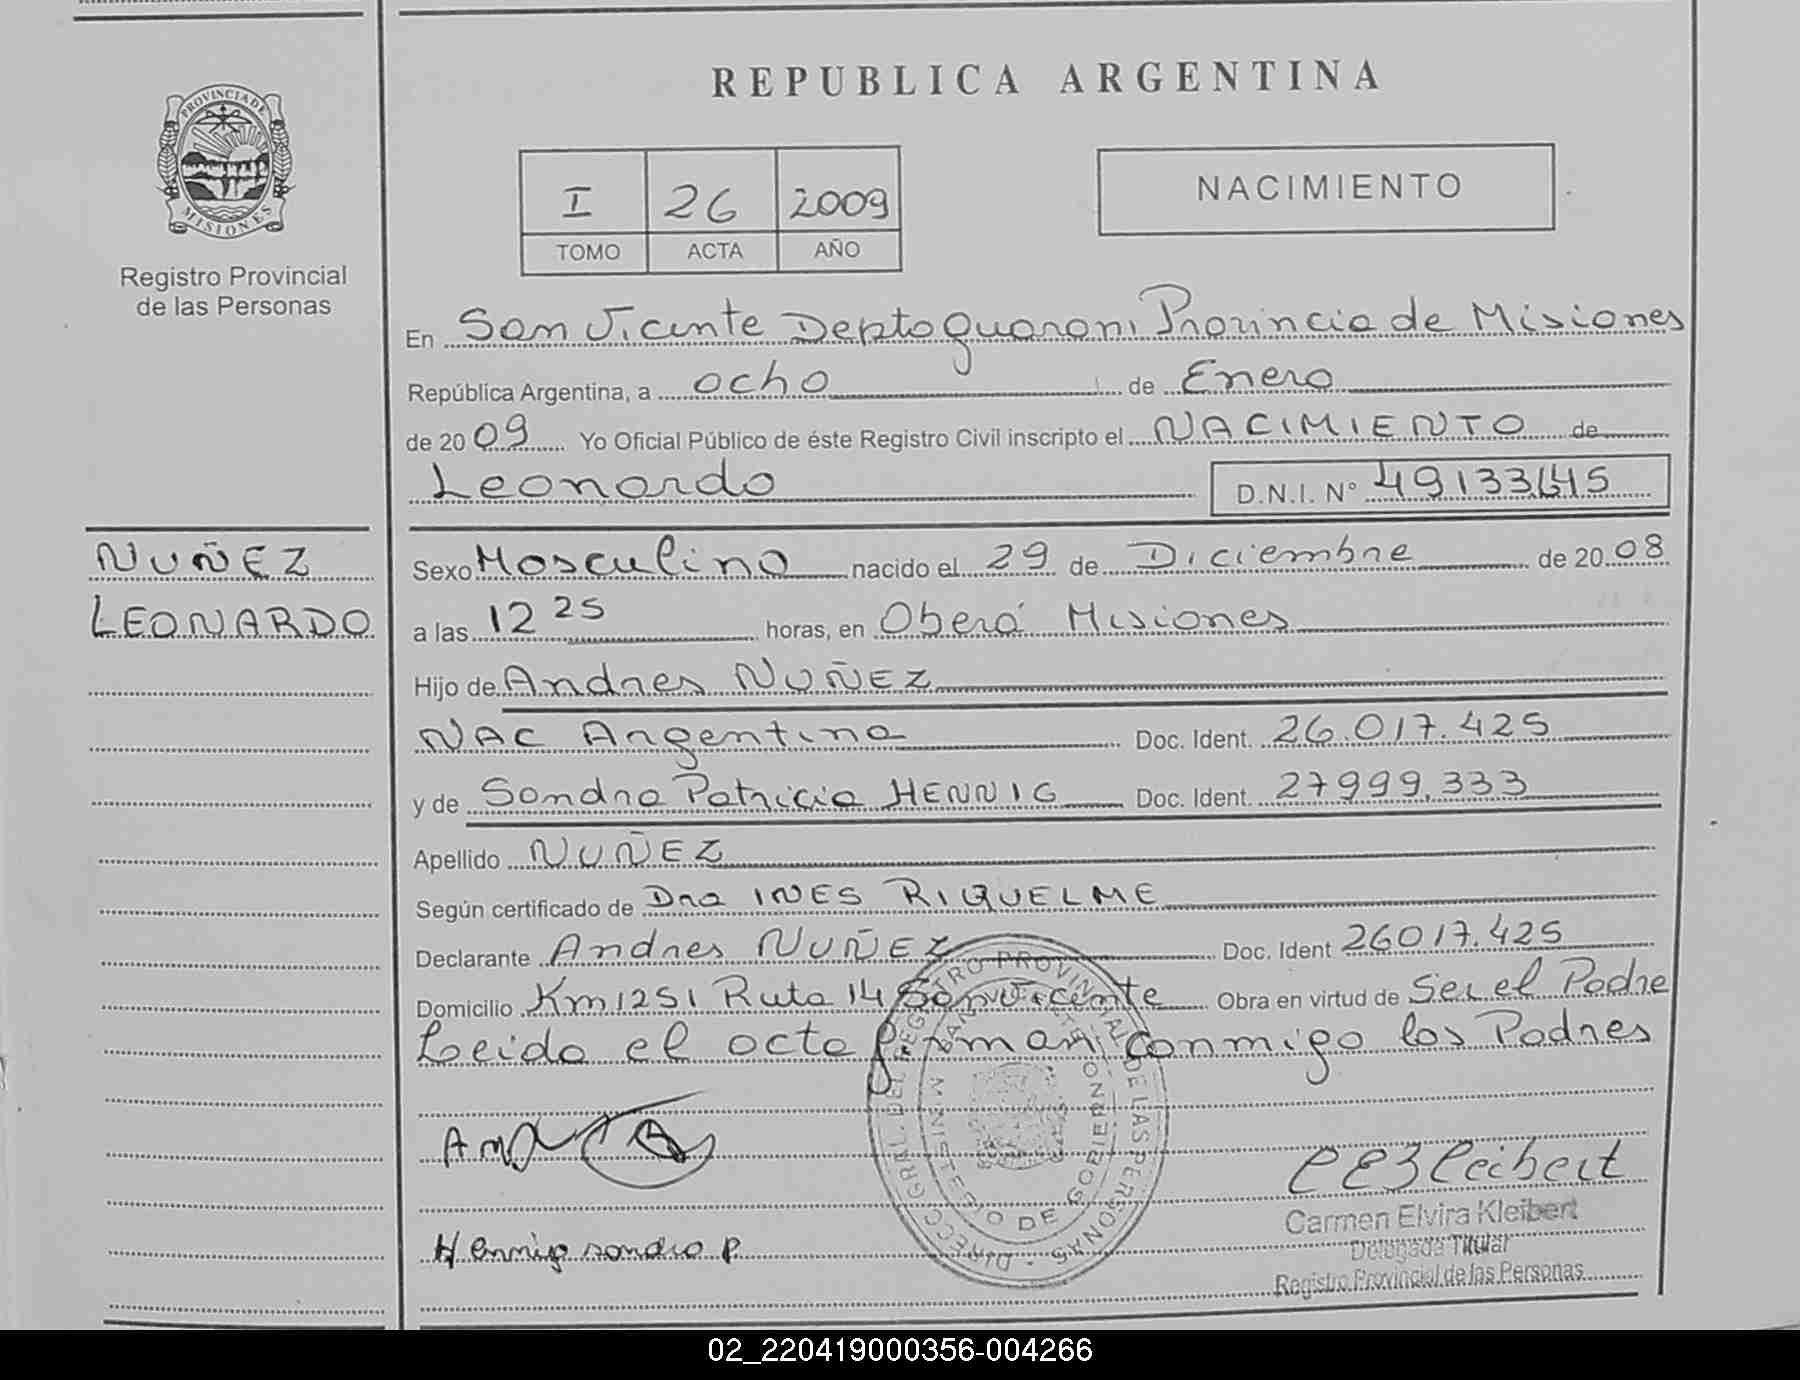 REPUBLICA ARGENTINA
PROVINCIA DE
MISIONES
Registro Provincial
de las Personas
I 26 2009
TOMO ACTA AÑO
NACIMIENTO
En San Vicente Depto Guarani Provincia de Misiones
República Argentina, a ocho de Enero
de 2009 Yo Oficial Público de éste Registro Civil inscripto el NACIMIENTO de
Leonardo
D.N.I. N° 49133645
NUÑEZ
LEONARDO
Sexo Masculino nacido el 29 de Diciembre de 2008
a las 12 25 horas, en Oberá Misiones
Hijo de Andres NUÑEZ
NAC Argentina Doc. Ident. 26.017.425
y de Sandra Patricia HENNIG Doc. Ident. 27999.333
Apellido NUÑEZ
Según certificado de Dra INES RIQUELME
Declarante Andres NUÑEZ Doc. Ident 26017.425
Domicilio Km1251 Ruta 14 San Vicente Obra en virtud de Ser el Padre
Leida el acta firman conmigo los Padres
DIRECC. GRAL. DEL REGISTRO PROVINCIAL DE LAS PERSONAS
MINISTERIO DE GOBIERNO
Hennig sandra P
Carmen Elvira Kleibert
Delegada Titular
Registro Provincial de las Personas
02_220419000356-004266